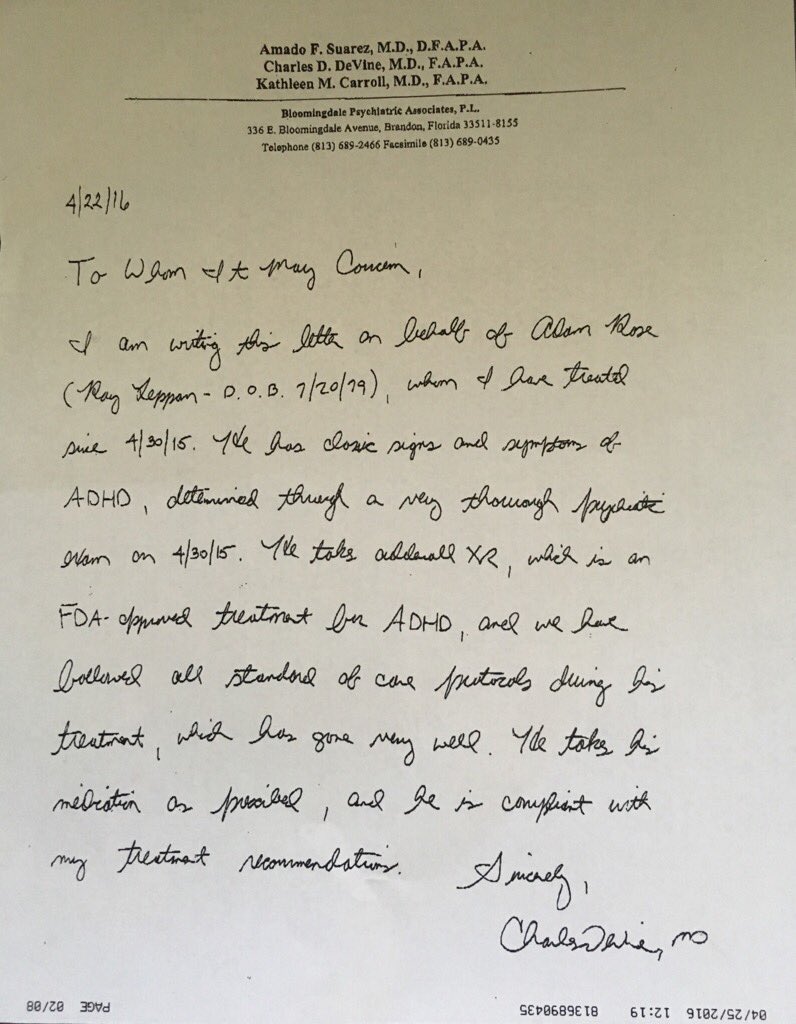 Amado F. Suarez, M.D., D.F.A.P.A.
Charles D. DeVine, M.D., F.A.P.A.
Kathleen M. Carroll, M.D., F.A.P.A.
Bloomingdale Psychiatric Associates, P.L.
336 E. Bloomingdale Avenue, Brandon, Florida 33511-8155
Telephone (813) 689-2466 Facsimile (813) 689-0435
4/22/16
To Whom It May Concern,
I am writing this letter on behalf of Adam Rose
(Ray Leppan - D.O.B. 7/20/79), whom I have treated
since 4/30/15. He has classic signs and symptoms of
ADHD, determined through a very thorough psychiatric
exam on 4/30/15. He takes adderall XR, which is an
FDA-approved treatment for ADHD, and we have
followed all standard of care protocols during his
treatment, which has gone very well. He takes his
medication as prescribed, and he is compliant with
my treatment recommendations.
Sincerely,
Charles DeVine, MD
04/25/2016 12:19 8136890435 PAGE 02/08